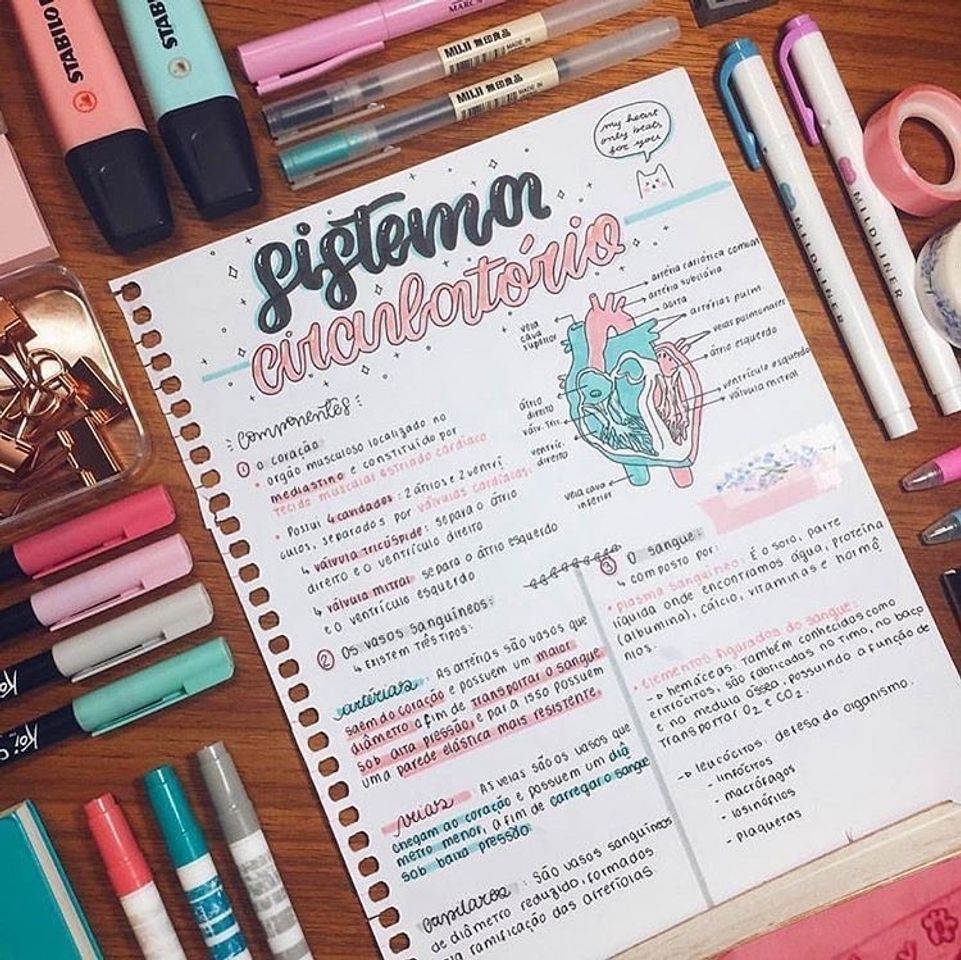 STABILO
STABI
MUJI 無印良品
MADE IN
MUJI 無印良品
MADE IN
MILDLINER
MILDLINER
Koi
Koi
my heart
only beats
for you
sistema
circulatório
artéria carótica comum
artéria subclávia
aorta
artérias pulm.
veias pulmonares
átrio esquerdo
ventrículo esquerdo
válvula mitral
veia
cava
superior
átrio
direito
válv. tric.
ventríc.
direito
veia cava
inferior
componentes
① O coração
• orgão musculoso localizado no
mediastino e constituído por
tecido muscular estriado cardíaco
• Possui 4 cavidades: 2 átrios e 2 ventrí
culos, separados por válvulas cardíacas:
↳ válvula tricúspide: separa o átrio
direito e o ventrículo direito
↳ válvula mitral separa o átrio esquerdo
e o ventrículo esquerdo
② Os vasos sanguíneos:
↳ EXISTEM TRÊS TIPOS:
artérias: As artérias são vasos que
saem do coração e possuem um maior
diâmetro a fim de transportar o sangue
sob alta pressão, e para isso possuem
uma parede elástica mais resistente.
veias As veias são os vasos que
chegam ao coração e possuem um diâ
metro menor, a fim de carregar o sangue
sob baixa pressão.
capilares: são vasos sanguíneos
de diâmetro reduzido, formados
pela ramificação das arteríolas.
③ O sangue:
↳ composto por:
• plasma sanguíneo: É o soro, parte
líquida onde encontramos água, proteína
(albumina), cálcio, vitaminas e hormô
nios.
• Elementos figurados do sangue:
→ hemáceas: Também conhecidos como
eritrócitos, são fabricadas no timo, no baço
e na medula óssea, possuindo a função de
transportar O2 e CO2.
→ leucócitos: defesa do organismo.
- linfócitos
- macrófagos
- eosinófilos
- plaquetas